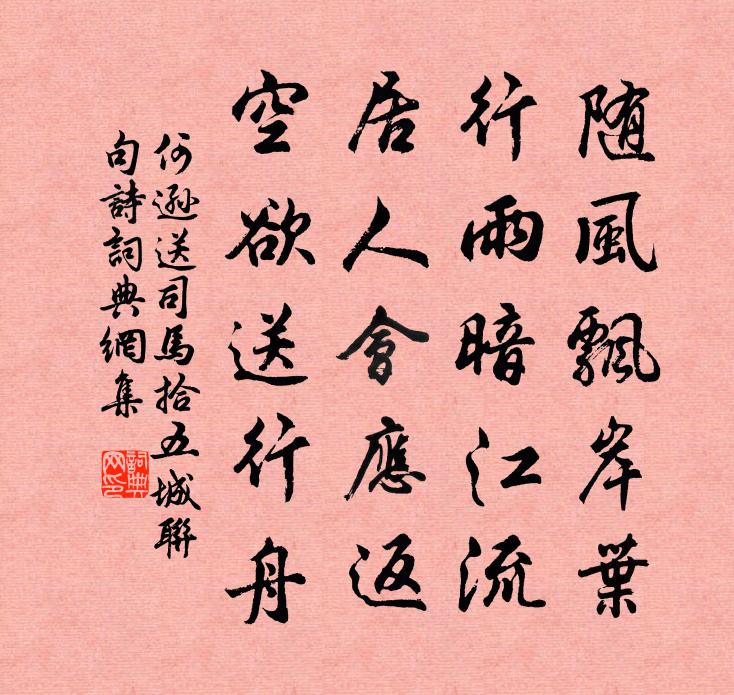 随風飄岸葉
行雨暗江流
居人會應返
空欲送行舟
何遜送司馬拾五城聯
句詩詞典網集
詞典網印